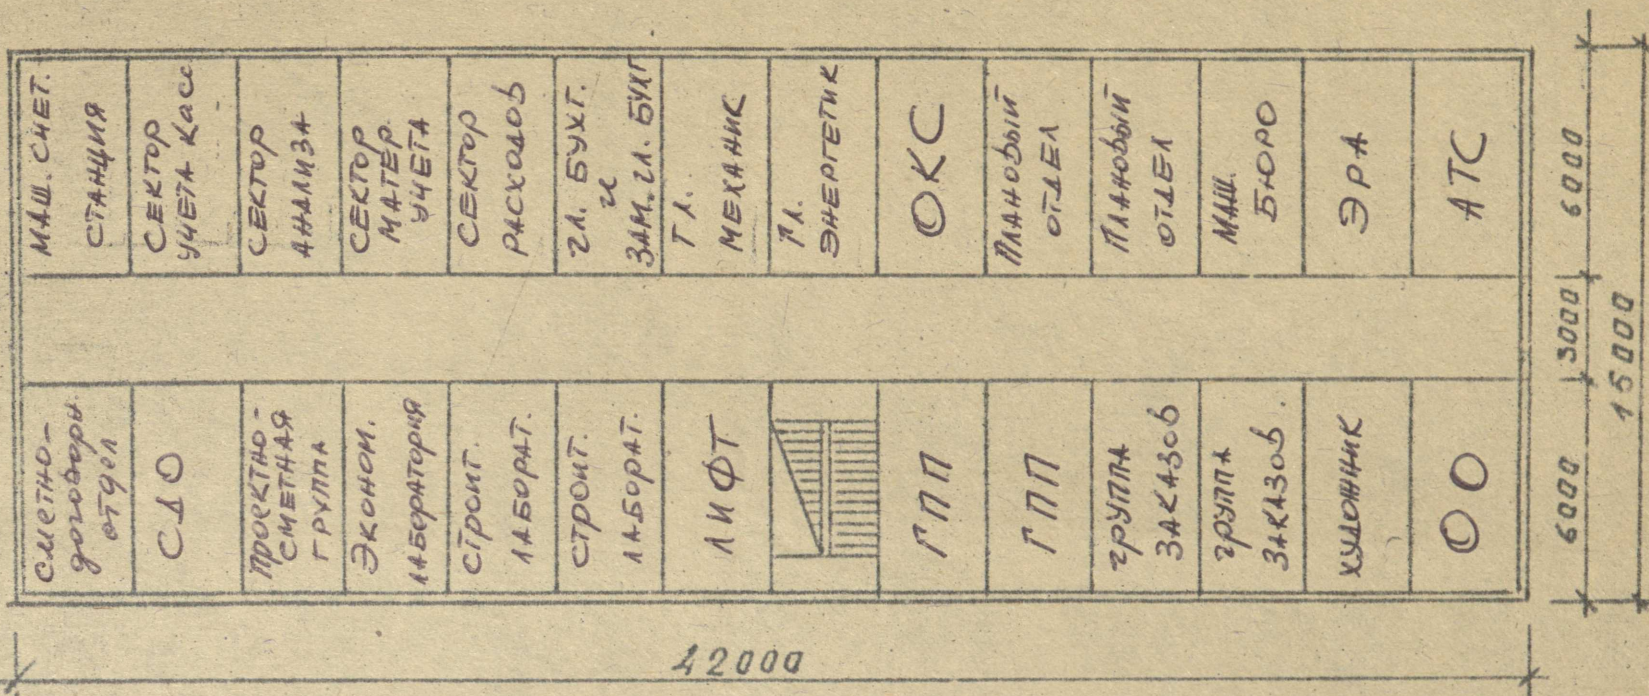 МАШ. СЧЕТ.
СТАНЦИЯ
СЕКТОР
УЧЕТА КАСС
СЕКТОР
АНАЛИЗА
СЕКТОР
МАТЕР.
УЧЕТА
СЕКТОР
РАСХОДОВ
ГЛ. БУХГ.
И
ЗАМ. ГЛ. БУХГ
ГЛ.
МЕХАНИК
ГЛ.
ЭНЕРГЕТИК
ОКС
ПЛАНОВЫЙ
ОТДЕЛ
ПЛАНОВЫЙ
ОТДЕЛ
МАШ.
БЮРО
ЭРА
АТС
СМЕТНО-
ДОГОВОРН.
ОТДЕЛ
СДО
ПРОЕКТНО-
СМЕТНАЯ
ГРУППА
ЭКОНОМ.
ЛАБОРАТОРИЯ
СТРОИТ.
ЛАБОРАТ.
СТРОИТ.
ЛАБОРАТ.
ЛИФТ
ГПП
ГПП
ГРУППА
ЗАКАЗОВ
ГРУППА
ЗАКАЗОВ.
ХУДОЖНИК
ОО
6000
3000
6000
15000
42000